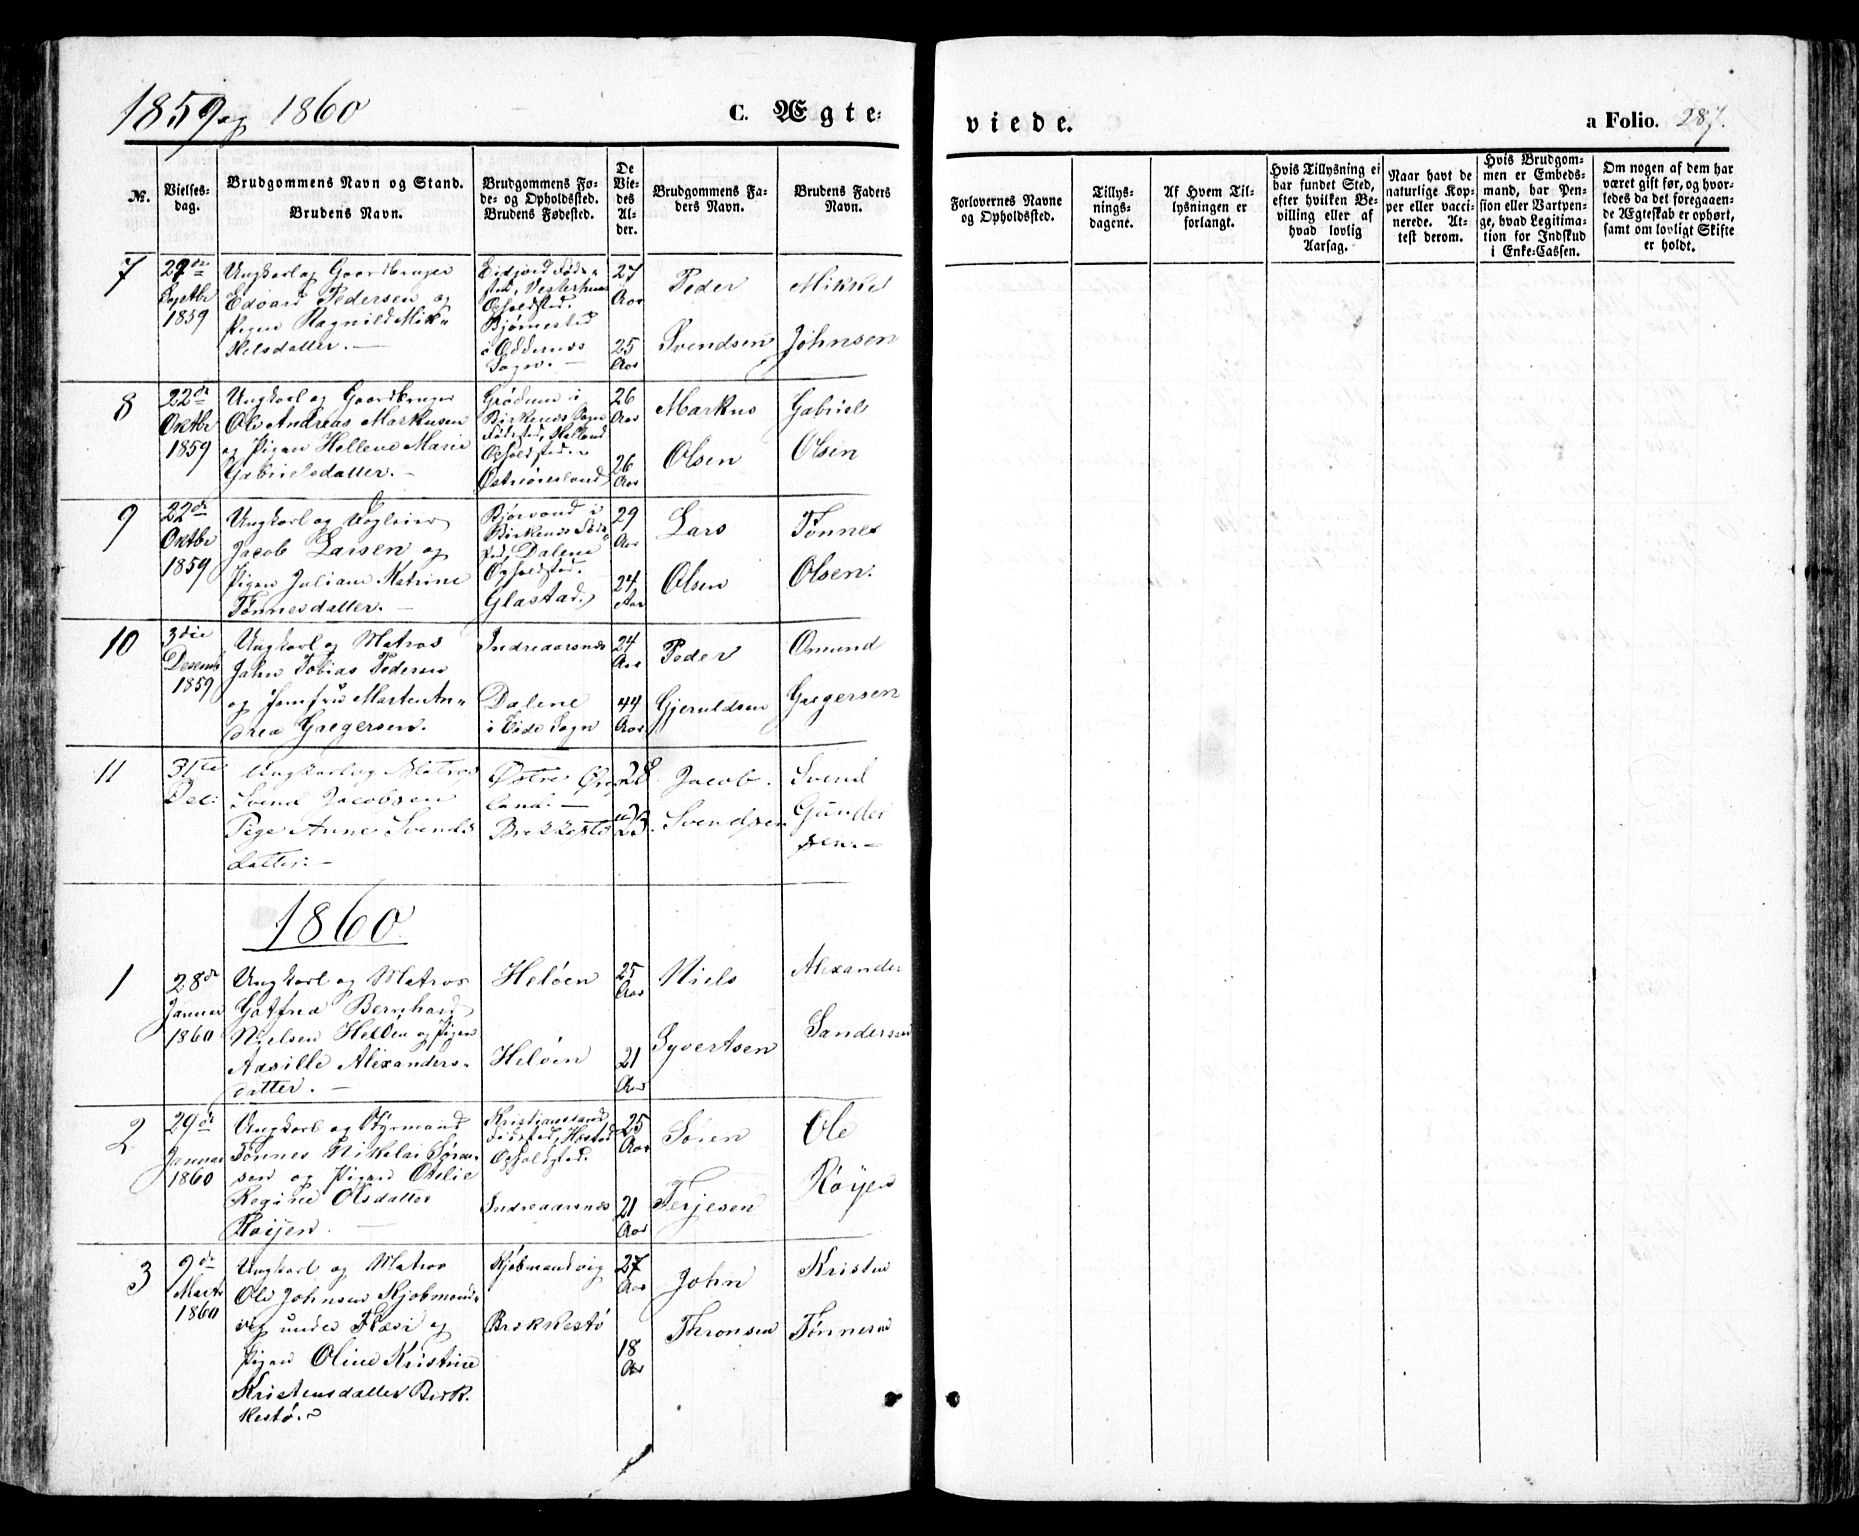 1859 og 1860
C. Ægte-
viede.
a Folio. 287.
No.
Vielses-
dag.
Brudgommens Navn og Stand.
Brudens Navn.
Brudgommens Fø-
de- og Opholdssted.
Brudens Fødested.
De
Vie-
des
Al-
der.
Brudgommens Fa-
ders Navn.
Brudens Faders
Navn.
Forlovernes Navne
og Opholdssted.
Tillys-
nings-
dagene.
Af Hvem Til-
lysningen er
forlangt.
Hvis Tillysning ei
har fundet Sted,
efter hvilken Be-
villing eller af
hvad lovlig
Aarsag.
Naar havt de
naturlige Kop-
per eller vacci-
nerede. At-
test derom.
Hvis Brudgom-
men er Embeds-
mand, har Pen-
sion eller Vartpen-
ge, hvad Legitima-
tion for Indskud
i Enke-Cassen.
Om nogen af dem har
været gift før, og hvor-
ledes da det foregaaen-
de Ægteskab er ophørt,
samt om lovligt Skifte
er holdt.
7
Septbr
1859
Ungkarl og Gaardbruger
Edvard Pedersen og
Pigen Ragnild Mik-
kelsdatter. —
Eidjord Føde-
sted, Vesterhuus
Opholdsted.
Bjørnestad
i Oddernes
Sogn. —
27
Aar
25
Aar
Peder
Svendsen
Mikkel
Johnsen
8
22de
Oktbr
1859
Ungkarl og Gaardbruger
Ole Andreas Markusen
og Pigen Hellene Marie
Gabrielsdatter. —
Grødum i
Birkenes Sogn
Fødsted, Hælland
Opholdsted.
Østreøresland
26
Aar
26
Aar
Markus
Olsen
Gabriel
Olsen
9
22de
Oktbr
1859
Ungkarl og
Jacob Larsen og
Pigen Juliane Katrine
Tønnesdatter. —
Bjørvand i
Birkenes Føde-
sted, Dalene
Opholdsted.
Glastad.
29
Aar
24
Aar
Lars
Olsen
Tønnes
Olsen.
10
3die
Desemb
1859
Ungkarl og Matros
John Tobias Pedersen
og Jomfru Marten An-
drea Gregersen.
Indreaarsnes
Dalene
i Eide Sogn
24
Aar
44
Aar
Peder
Gjeruldsen
Omund
Gregersen
11
31te
Dec:
Ungkarl og Matros
Svend Jacobsen
Pige Anne Svends
datter: —
Østre Øres
land: —
Brekkestø
28
23.
Jacob.
Svendsen
Svend
Gunder
sen. —
1860.
1
28de
Januar
1860
Ungkarl og Matros
Gotfred Bernhard
Nielsen Heløen og Pigen
Axsille Alexanders-
datter. —
Heløen
Heløen
25
Aar
21
Aar
Niels
Syvertsen
Alexander
Sandersen
2
29de
Januar
1860
Ungkarl og Styrmand
Tønnes Nikolai Søren-
sen og Pigen Otelie
Regine Olsdatter
Røijen. —
Kristianssand
Fødsted, Høsted
Opholdsted.
Indreaarsnes
25
Aar
21
Aar
Søren
Terjesen
Ole
Røyen
3
9de
Marts
1860
Ungkarl og Matros
Ole Johnsen Kjobmand-
vig under Flæsi og
Pigen Oline Kristine
Kristensdatter Brek-
kestø.
Kjøbmandvig
Brekkestø
27
Aar
18
Aar
John
Thronsen
Kristen
Tønnesen